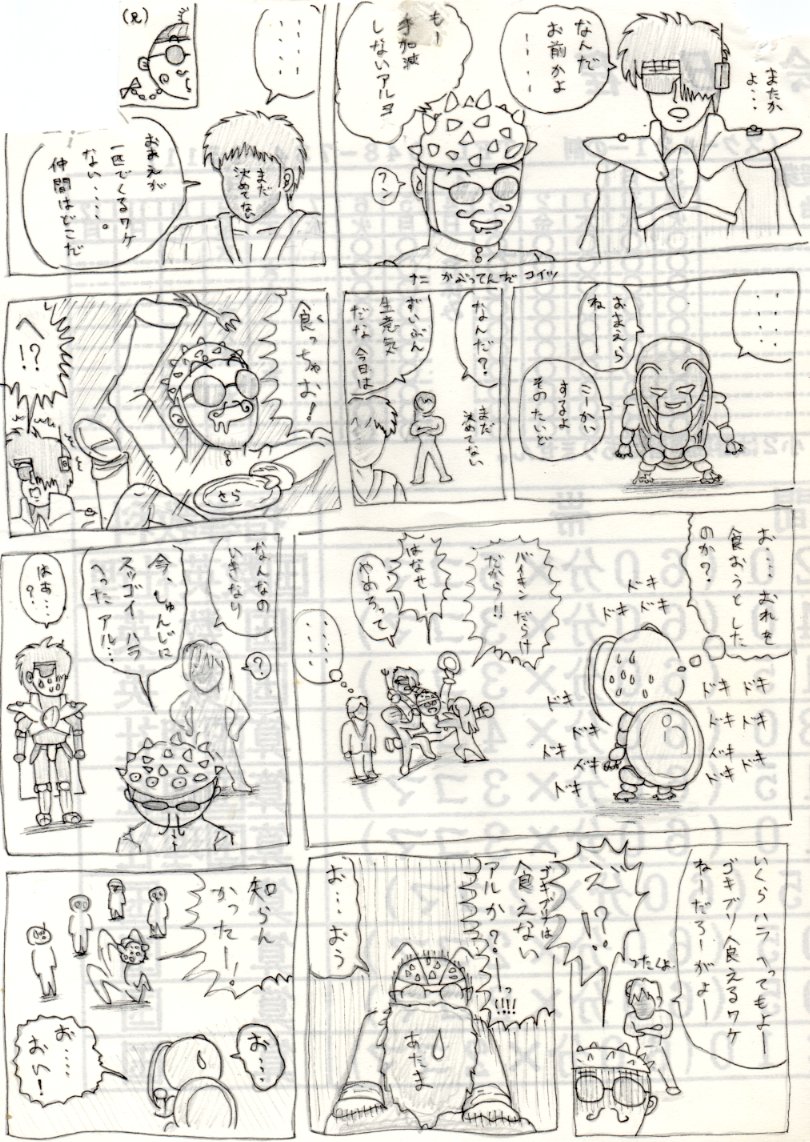 またか
よ・・・
なんだ
お前かよ
・・・・
もー
手加減
しないアルヨ
フン
・・・・・
まだ
決めてない
おまえが
一匹でくるワケ
ない・・・・。
仲間はどこだ
(兄)
ナニ かぶってんだ コイツ
・・・・・
おまえら
ねー
こーかい
するなよ
そのたいど
なんだ?
まだ
決めてない
ずいぶん
生意気
だな 今日は
食っちゃお!
さら
へ!?
お・・・おれを
食おうとした
のか?
ドキ
ドキ
ドキ
ドキ
ドキ
ドキ
ドキ
ドキ
ドキ
ドキ
ドキ
ドキ
ドキ
バイキン だらけ
だから!!
はなせー
やめろって
・・・・・
なんなの
いきなり
?
今、しゅんじに
スッゴイ ハラ
へったアル・・・
はぁ・・・
?
いくらハラ へってもよー
ゴキブリ 食えるワケ
ねーだろーがよー
ったくよ
え"!?
ゴキブリは
食えない
アルか?ーっ!!!!
あたま
お・・・おう
知らん
かったー!
お・・・
お・・・・
おい!